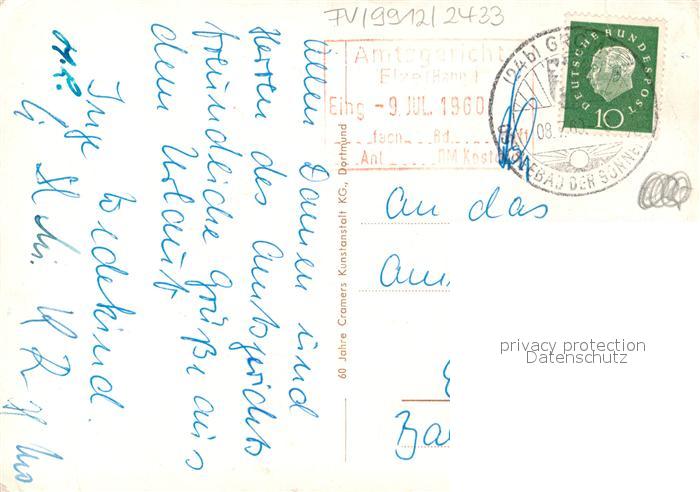 FV/9912/2433
Amtsgericht
Elze (Hann.)
Eing. -9. JUL. 1960
fach Bd. Heft
Ant. DM Kosten
(24b) GR
08.
OSTSEEBAD DER SONNE
DEUTSCHE BUNDESPOST
10
Allen Damen und
Herren des Amtsgerichts
freundliche Grüße aus
dem Urlaub
Inge Wedekind.
60 Jahre Cramers Kunstanstalt KG., Dortmund
An das
Am
Ba
privacy protection
Datenschutz